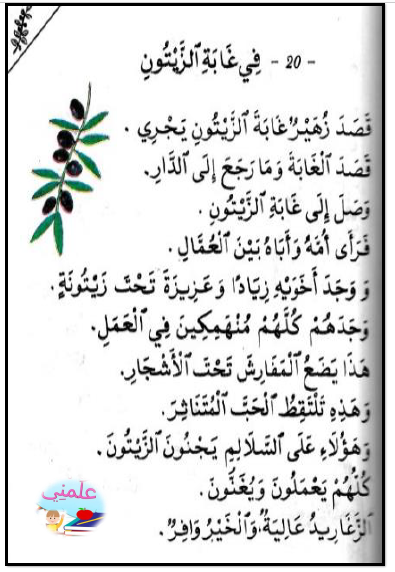 - 20 - فِي غَابَةِ ٱلزَّيْتُونِ
قَصَدَ زُهَيْرٌ غَابَةَ ٱلزَّيْتُونِ يَجْرِي .
قَصَدَ ٱلْغَابَةَ وَمَا رَجَعَ إِلَى ٱلدَّارِ.
وَصَلَ إِلَى غَابَةِ ٱلزَّيْتُونِ .
فَرَأَى أُمَّهُ وَأَبَاهُ بَيْنَ ٱلْعُمَّالِ.
وَوَجَدَ أَخَوَيْهِ زِيَادًا وَعَزِيزَةَ تَحْتَ زَيْتُونَةٍ.
وَجَدَهُمْ كُلَّهُمْ مُنْهَمِكِينَ فِي ٱلْعَمَلِ.
هَذَا يَضَعُ ٱلْمَفَارِشَ تَحْتَ ٱلْأَشْجَارِ.
وَهَذِهِ تَلْتَقِطُ ٱلْحَبَّ ٱلْمُتَنَاثِرَ.
وَهَؤُلَاءِ عَلَى ٱلسَّلَالِمِ يَجْنُونَ ٱلزَّيْتُونَ.
كُلُّهُمْ يَعْمَلُونَ وَيُغَنُّونَ.
ٱلزَّغَارِيدُ عَالِيَةٌ وَٱلْخَيْرُ وَافِرٌ .
علمني